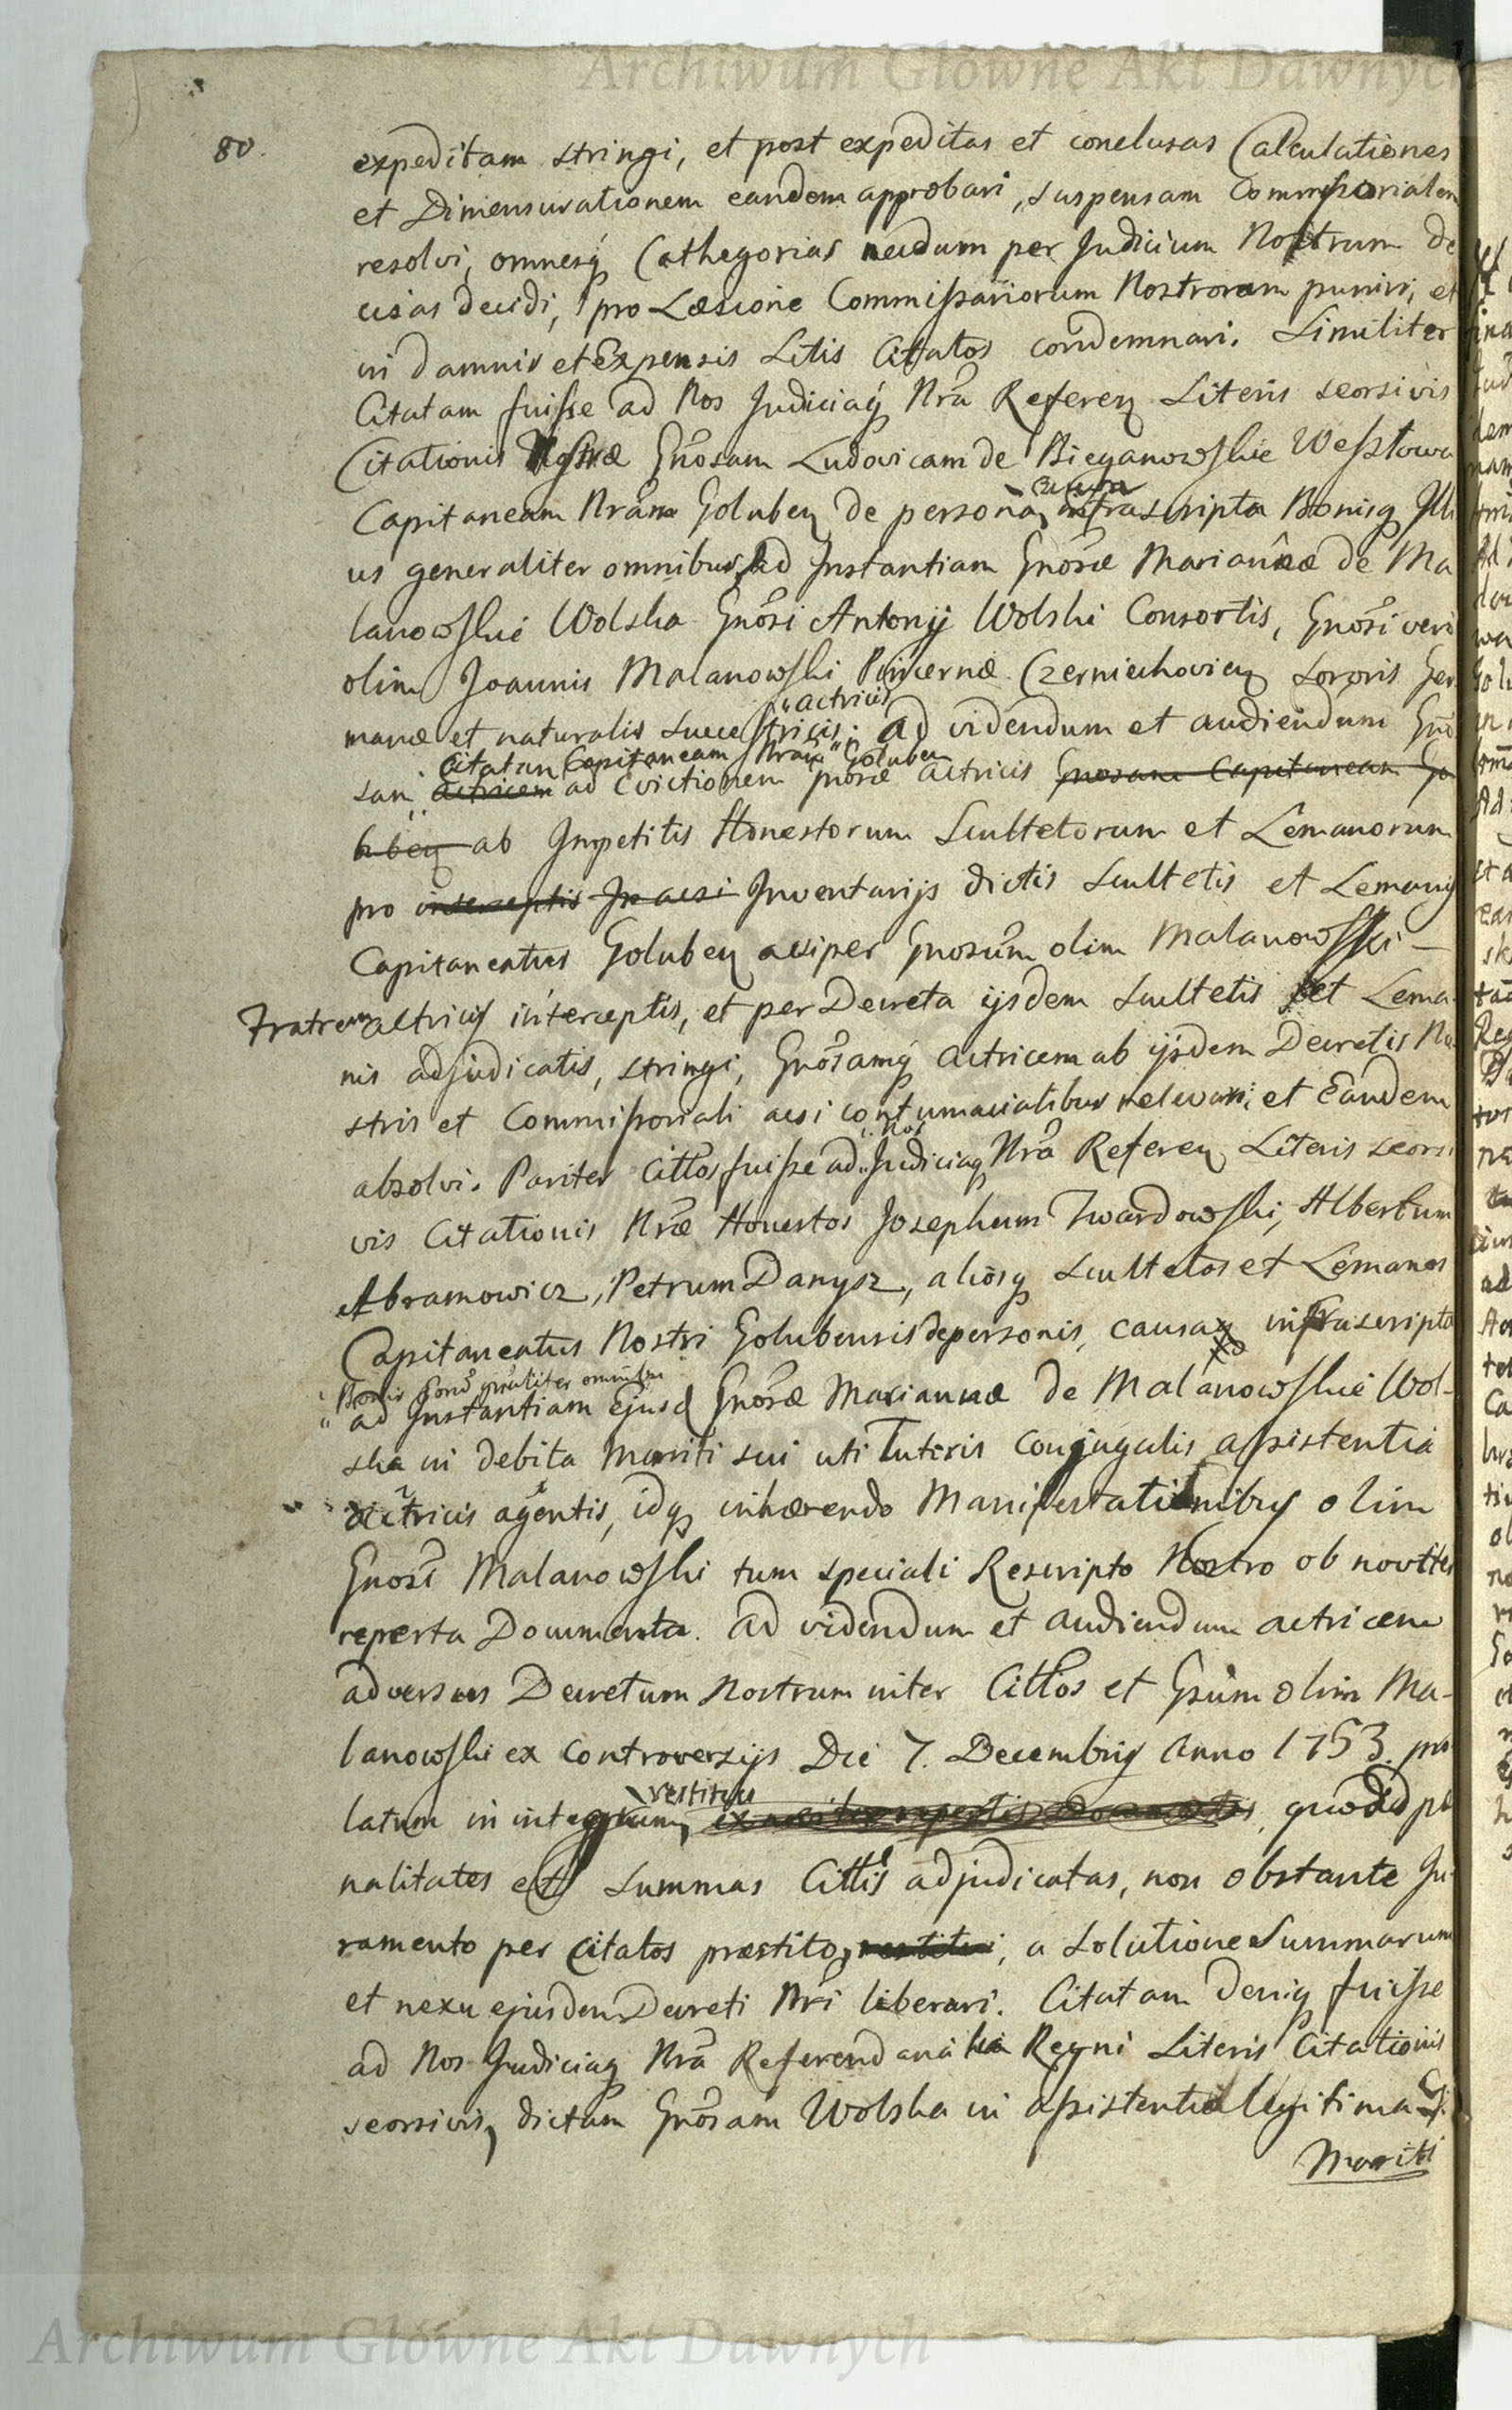 Archiwum Główne Akt Dawnych
80.
expeditam stringi, et post expeditas et conclusas Calculationes
et Dimensurationem eandem approbari, suspensam Commissorialem
resolvi, omnesq́ Cathegorias necdum per Judicium Nostrum de
cisas decidi, pro Læsione Commissariorum Nostrorum puniri, et
in damnis et Expensis Litis Citatos condemnari. Similiter
Citatam fuisse ad Nos Judiciaq́ Nrã Referen Literis seorsivis
Citationis Nostræ Gnõsam Ludovicam de Bieganowskie Weszlowa
causa
Capitaneam Nrãm Goluben de persona, infrascripta Bonisq Illi
us generaliter omnibus, ad Instantiam Gnõsæ Mariannæ de Ma
lanowskie Wolska Gnõsi Antonij Wolski Consortis, Gnõsi vero
olim Joannis Malanowski Pincernæ Czerniechovien Sororis Ger
actricis
manæ et naturalis Successtricis. ad videndum et audiendum Gnõ
Citatam Capitaneam Nram Goluben
sam actricem ad Evictionem Gnõsæ actricis Gnosam Capitaneam Go
luben ab Impetitis Honestorum Scultetorum et Lemanorum
pro interceptis Inventarijs dictis Scultetis et Lemanis
Capitaneatus Goluben acsi per Gnosũm olim Malanowski
Fratrem actricis interceptis, et per Decreta ijsdem Scultetis et Lema
nis adjudicatis, stringi, Gnõsamq́ actricem ab ijsdem Decretis No
stris et Commissoriali acsi contumacialibus relevari, et Eandem
Nos
absolvi. Pariter Cittos fuisse ad Judiciaq Nrã Referen Literis seorsi
vis Citationis Nræ Honestos Josephum Twardowski, Albertum
Abramowicz, Petrum Danysz, aliosq Scultetos et Lemanos
Capitaneatus Nostri Golubensis de personis, causaq infrascripta
Bonis gnraliter omnibus
ad Instantiam Ejusd Gnõsæ Mariannæ de Malanowskie Wol-
ska in debita Mariti sui uti Tutoris conjugalis assistentia
actricis agentis, idq inhærendo Manifestationibus olim
Gnosi Malanowski tum speciali Rescripto Nostro ob noviter
reperta Documenta. ad videndum et audiendum actricem
adversus Decretum Nostrum inter Cittos et Gsum olim Ma-
lanowski ex Controversijs Die 7. Decembris Anno 1753. pro
restitui
latum in integrum, ex noviter repertis Documentis, quoad pœ
nalitates et Summas Cittis adjudicatas, non obstante Ju-
ramento per Citatos præstito, restitui, a Solutione Summarum
et nexu ejusdem Decreti Nri liberari. Citatam deniq fuisse
ad Nos Judiciaq Nrã Referendaria Regni Literis Citationis
seorsivis, dictam Gnõsam Wolska in assistentia legitima
Mariti
Archiwum Główne Akt Dawnych